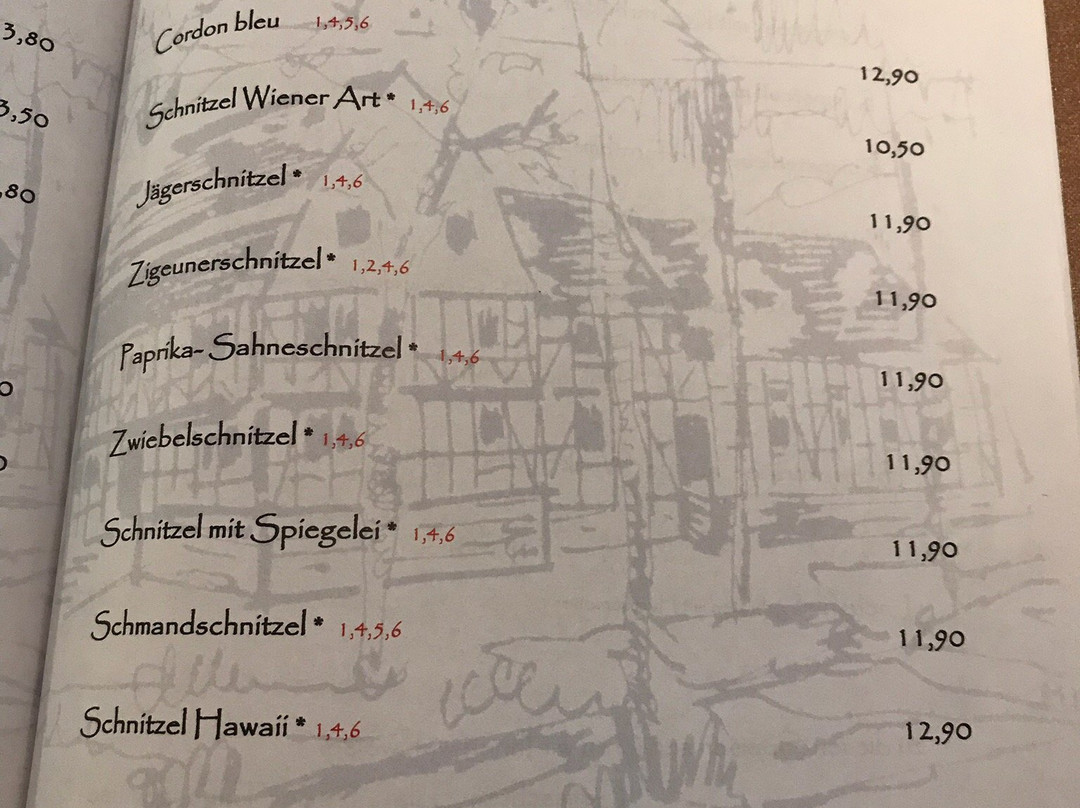 3,80
3,50
,80
Cordon bleu 1,4,5,6 12,90
Schnitzel Wiener Art * 1,4,6 10,50
Jägerschnitzel * 1,4,6 11,90
Zigeunerschnitzel * 1,2,4,6 11,90
Paprika- Sahneschnitzel * 1,4,6 11,90
Zwiebelschnitzel * 1,4,6 11,90
Schnitzel mit Spiegelei * 1,4,6 11,90
Schmandschnitzel * 1,4,5,6 11,90
Schnitzel Hawaii * 1,4,6 12,90